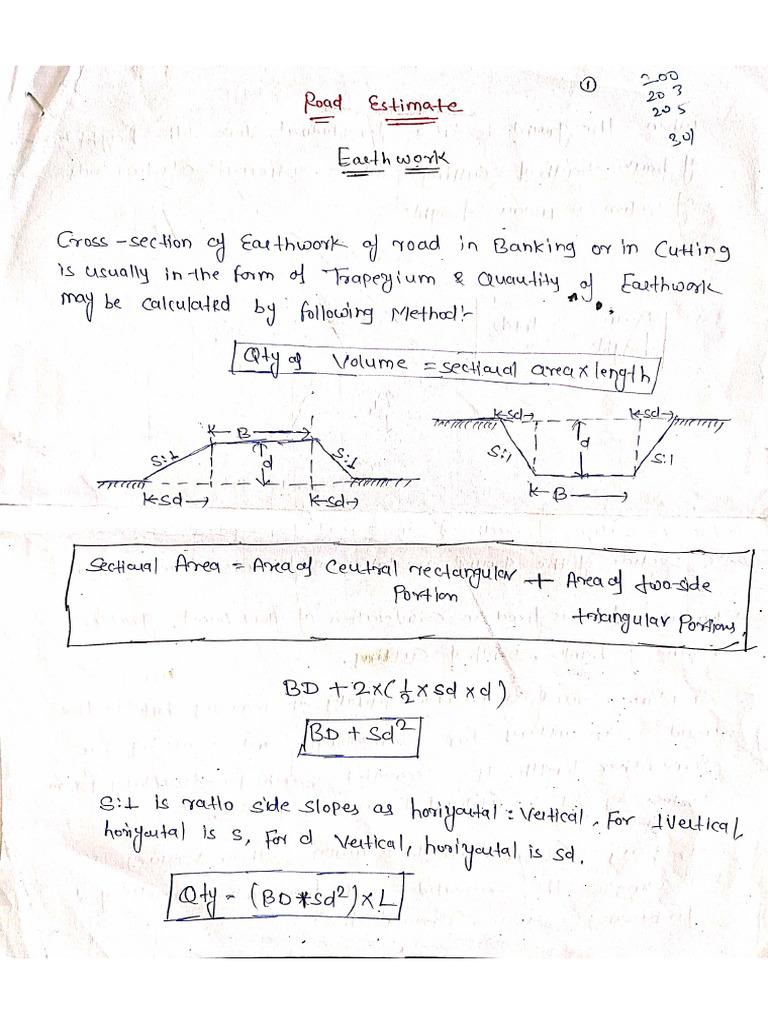 ①
200
203
205
301
Road Estimate
Earthwork
Cross-section of Earthwork of road in Banking or in Cutting
is usually in the form of Trapezium & Quantity of Earthwork
may be calculated by following Method:-
Qty of Volume = sectional area x length
B
S:1
d
S:1
sd
sd
sd
sd
d
S:1
S:1
B
Sectional Area = Area of Central rectangular + Area of two-side
Portion
triangular Portions.
BD + 2x(½ x sd x d)
BD + Sd²
S:1 is ratio side slopes as horizontal : Vertical. For 1 Vertical,
horizontal is s, For d Vertical, horizontal is sd.
Qty - (BD+sd²)xL